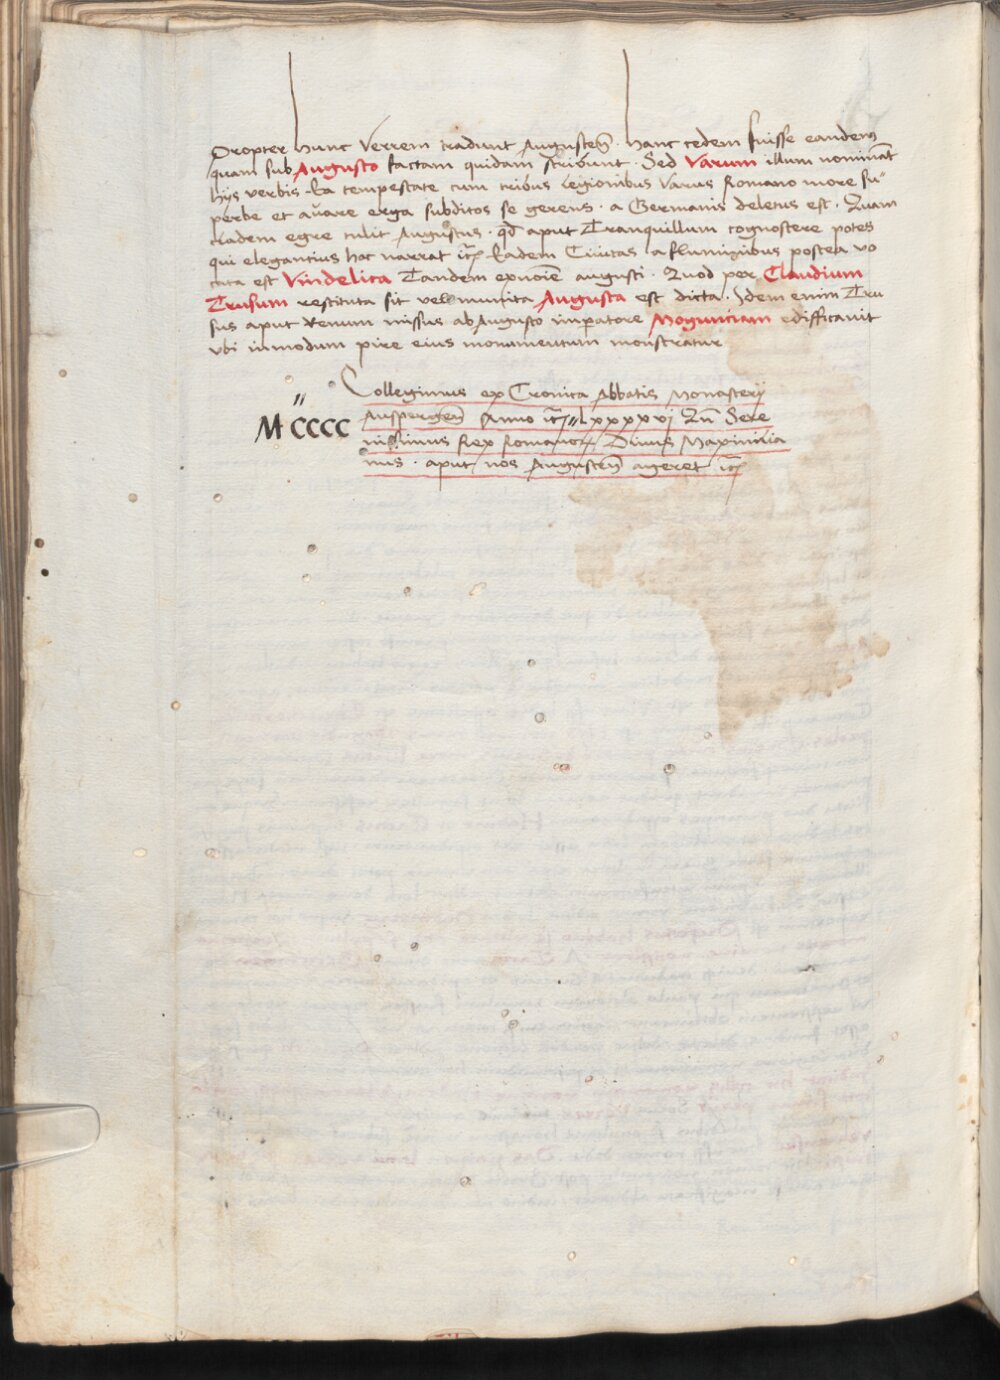 Propter hunc Verrem tradunt Augusteñ. hanc cedem fuisse eandem
quam sub Augusto factam quidam scribunt. Sed Varum illum nominãt
hijs verbis. Ea tempestate cum tribus legionibus Varus Romano more su"
perbe et avare erga subditos se gerens. a Germanis deletus est. Quam
cladem egre tulit Augustus. qd aput Tranquillum cognoscere potes
qui elegantius hoc narrat Eadem Civitas a fluminibus postea vo
cata est Vindelica Tandem ex noie augusti. Quod per Claudium
Trusum restituta sit vel munita Augusta est dicta. Idem enim Tru
sus aput Renum missus ab Augusto impatore Moguntiam edifficavit
vbi in modum pire eius monumentum monstratur
Collegimus ex Cronica Abbatis Monasterij
M"CCCC Auspergeñ Anno "Lxxxxvj Qñ Sere
nissimus Rex Romanoꝝ Divus Maximilia
nus. aput nos Augusteñ ageret